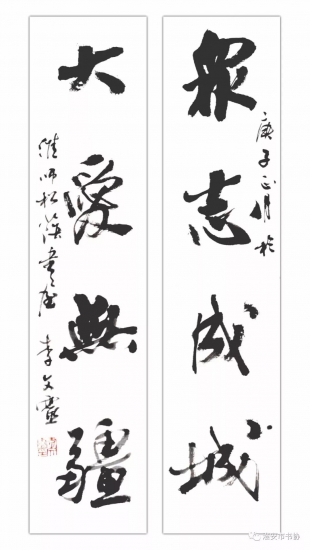 眾志成城
庚子正月於
大愛無疆
淮師松篠畫屋 李文靈
淮安市书协